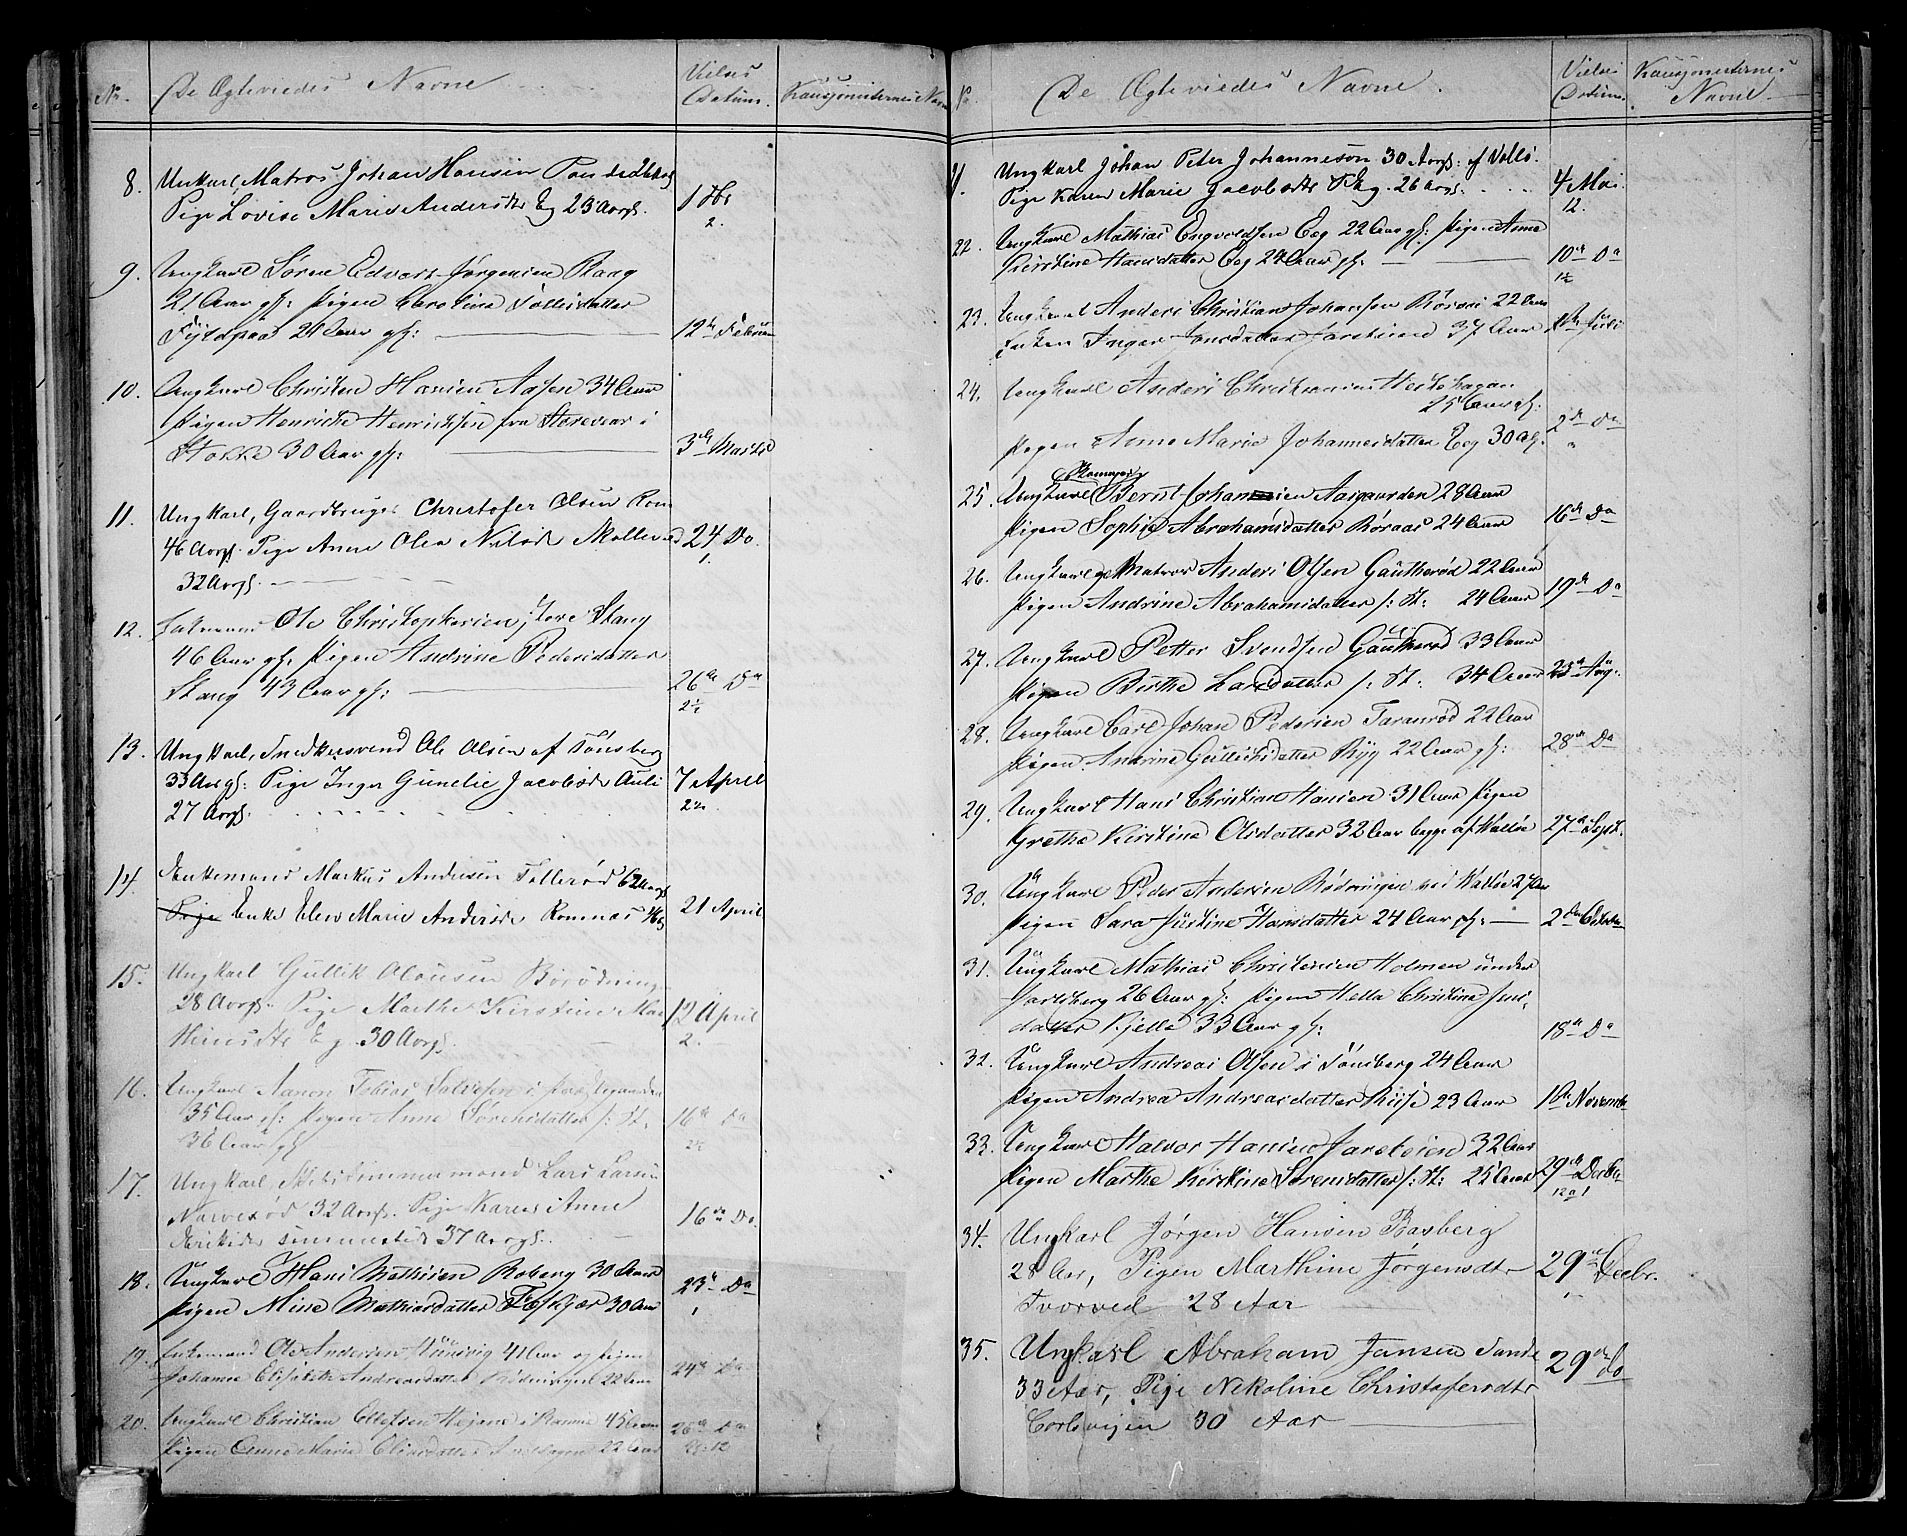 No. De Ægteviedes Navne Vielses Datum. Kausjonisternes Navne
8. Unkarl, Matros Johan Hansen
Pige Lovise Marie Andersdtr Eg 23 Aargl. 1 Fbr
2.
9. Ungkarl Søren Edvart Jørgensen Raag
21 Aar gl: Pigen Caroline Tollefsdatter
24 Aar gl: 12te Februar
10. Ungkarl Christen Hansen Aasen 34 Aar
Pigen Henrikke Henriksen fra Storevar i
Stokke 30 Aar gl: 3die Marts
11. Ungkarl, Gaardbruger Christofer Olsen Rom
46 Aargl. Pige Anne Olea Nilsdr 24 Do.
32 Aargl. 1.
12. Enkemand Ole Christophersen store Stang
46 Aar gl: Pigen Andrine Pedersdatter
Stang 43 Aar gl: 26de Do
13. Ungkarl, Snedkersvend Ole Olsen af Tønsberg
33 Aargl: Pige Inger Gunelie Jacobsdr Auli 7 April
27 Aargl.
14. Enkemand Markus Andersen Tollerød 62 Aargl
Pige Enke Elen Marie Andersdr Romnæs 21 April
15. Ungkarl Gullik Olausen
28 Aargl. Pige Marthe Kirstine Mat 12 April
hiasdtr Eg. 30 Aargl. 2.
16. Ungkarl Aanon Tobias Salvesen i Præstegaarden
35 Aar gl: Pigen Anne Sørensdatter f: St. 16de Do
36 Aar gl
17. Ungkarl, Skibstimmermand Lars Larsen
Narverød 32 Aargl. Pige Karen Anne
Eriksdr sammested 37 Aargl. 16de Do.
18. Ungkarl Hans Mathisen Roberg 30 Aar
Pigen Mine Mathiasdatter 30 Aar 23de Do
1
19. Enkemand Ole Andersen 41 Aar og Pigen
Johanne Elisabeth Andreasdatter 22 Aar 24de Do
20. Ungkarl Christian Ellefsen i Ramnæs 45 Aar
Pigen Anne Marie Eliasdatter 22 Aar Do
No. De Ægteviedes Navne. Vielses Datum. Kausjonisternes Navne
21. Ungkarl Johan Peter Johannesen 30 Aargl: af Valløe.
Pige Karen Marie Jacobsdtr Eg. 26 Aargl. 4 Mai
12.
22. Ungkarl Mathias Engvoldsen Eeg 22 Aar gl: Pigen Anne
Kirstine Hansdatter Eeg 24 Aar gl: 10de Do
23. Ungkarl Anders Christian Johansen Røraas 22 Aar
Enken Inger Jensdatter Jarsteien 37 Aar Juli
24. Ungkarl Anders Christiansen Hestehagan
25 Aar gl:
Pigen Anne Marie Johannesdatter Eeg 30 Ag. 2de Do
25. Ungkarl Bernt Johansen Aasgaarden 28 Aar
Pigen Sophie Abrahamsdatter Røraas 24 Aar 16de Do
26. Ungkarl og Matros Anders Olsen Gautherød 22 Aar
Pigen Andrine Abrahamsdatter f: St: 24 Aar 19de Do
27. Ungkarl Petter Svendsen Gautherød 33 Aar
Pigen Birthe Larsdatter f: St: 34 Aar Aug.
28. Ungkarl Carl Johan Pedersen Taranrød 22 Aar
Pigen Andrine Gulliksdatter Ryg 22 Aar gl: 28de Do
29. Ungkarl Hans Christian Hansen 31 Aar Pigen
Grethe Kirstine Olsdatter 32 Aar begge af Valløe 27de Sept.
30. Ungkarl Peder Andersen Rødningen ved Valløe 27 Aar
Pigen Sara Justine Hansdatter 24 Aar gl: 2den October
31. Ungkarl Mathias Christensen Holmen under
Jarlsberg 26 Aar gl: Pigen Helle Christine Jens,
datter Kjelle 33 Aar gl: 18de Do
32. Ungkarl Andreas Olsen i Tønsberg 24 Aar
Pigen Andrea Andreasdatter Riise 23 Aar Novemb
33. Ungkarl Halvor Hansen Jarsteien 32 Aar
Pigen Marthe Kirstine Sørensdatter f: St: 25 Aar 29de Decbr
34. Ungkarl Jørgen Hansen Basberg
28 Aar, Pigen Marthine Jørgensdtr 29de Decbr.
Tvorved 28 Aar
35. Ungkarl Abraham Jansen Sande
33 Aar, Pige Nekoline Christofersdtr 29de do
Corlsvigen 30 Aar